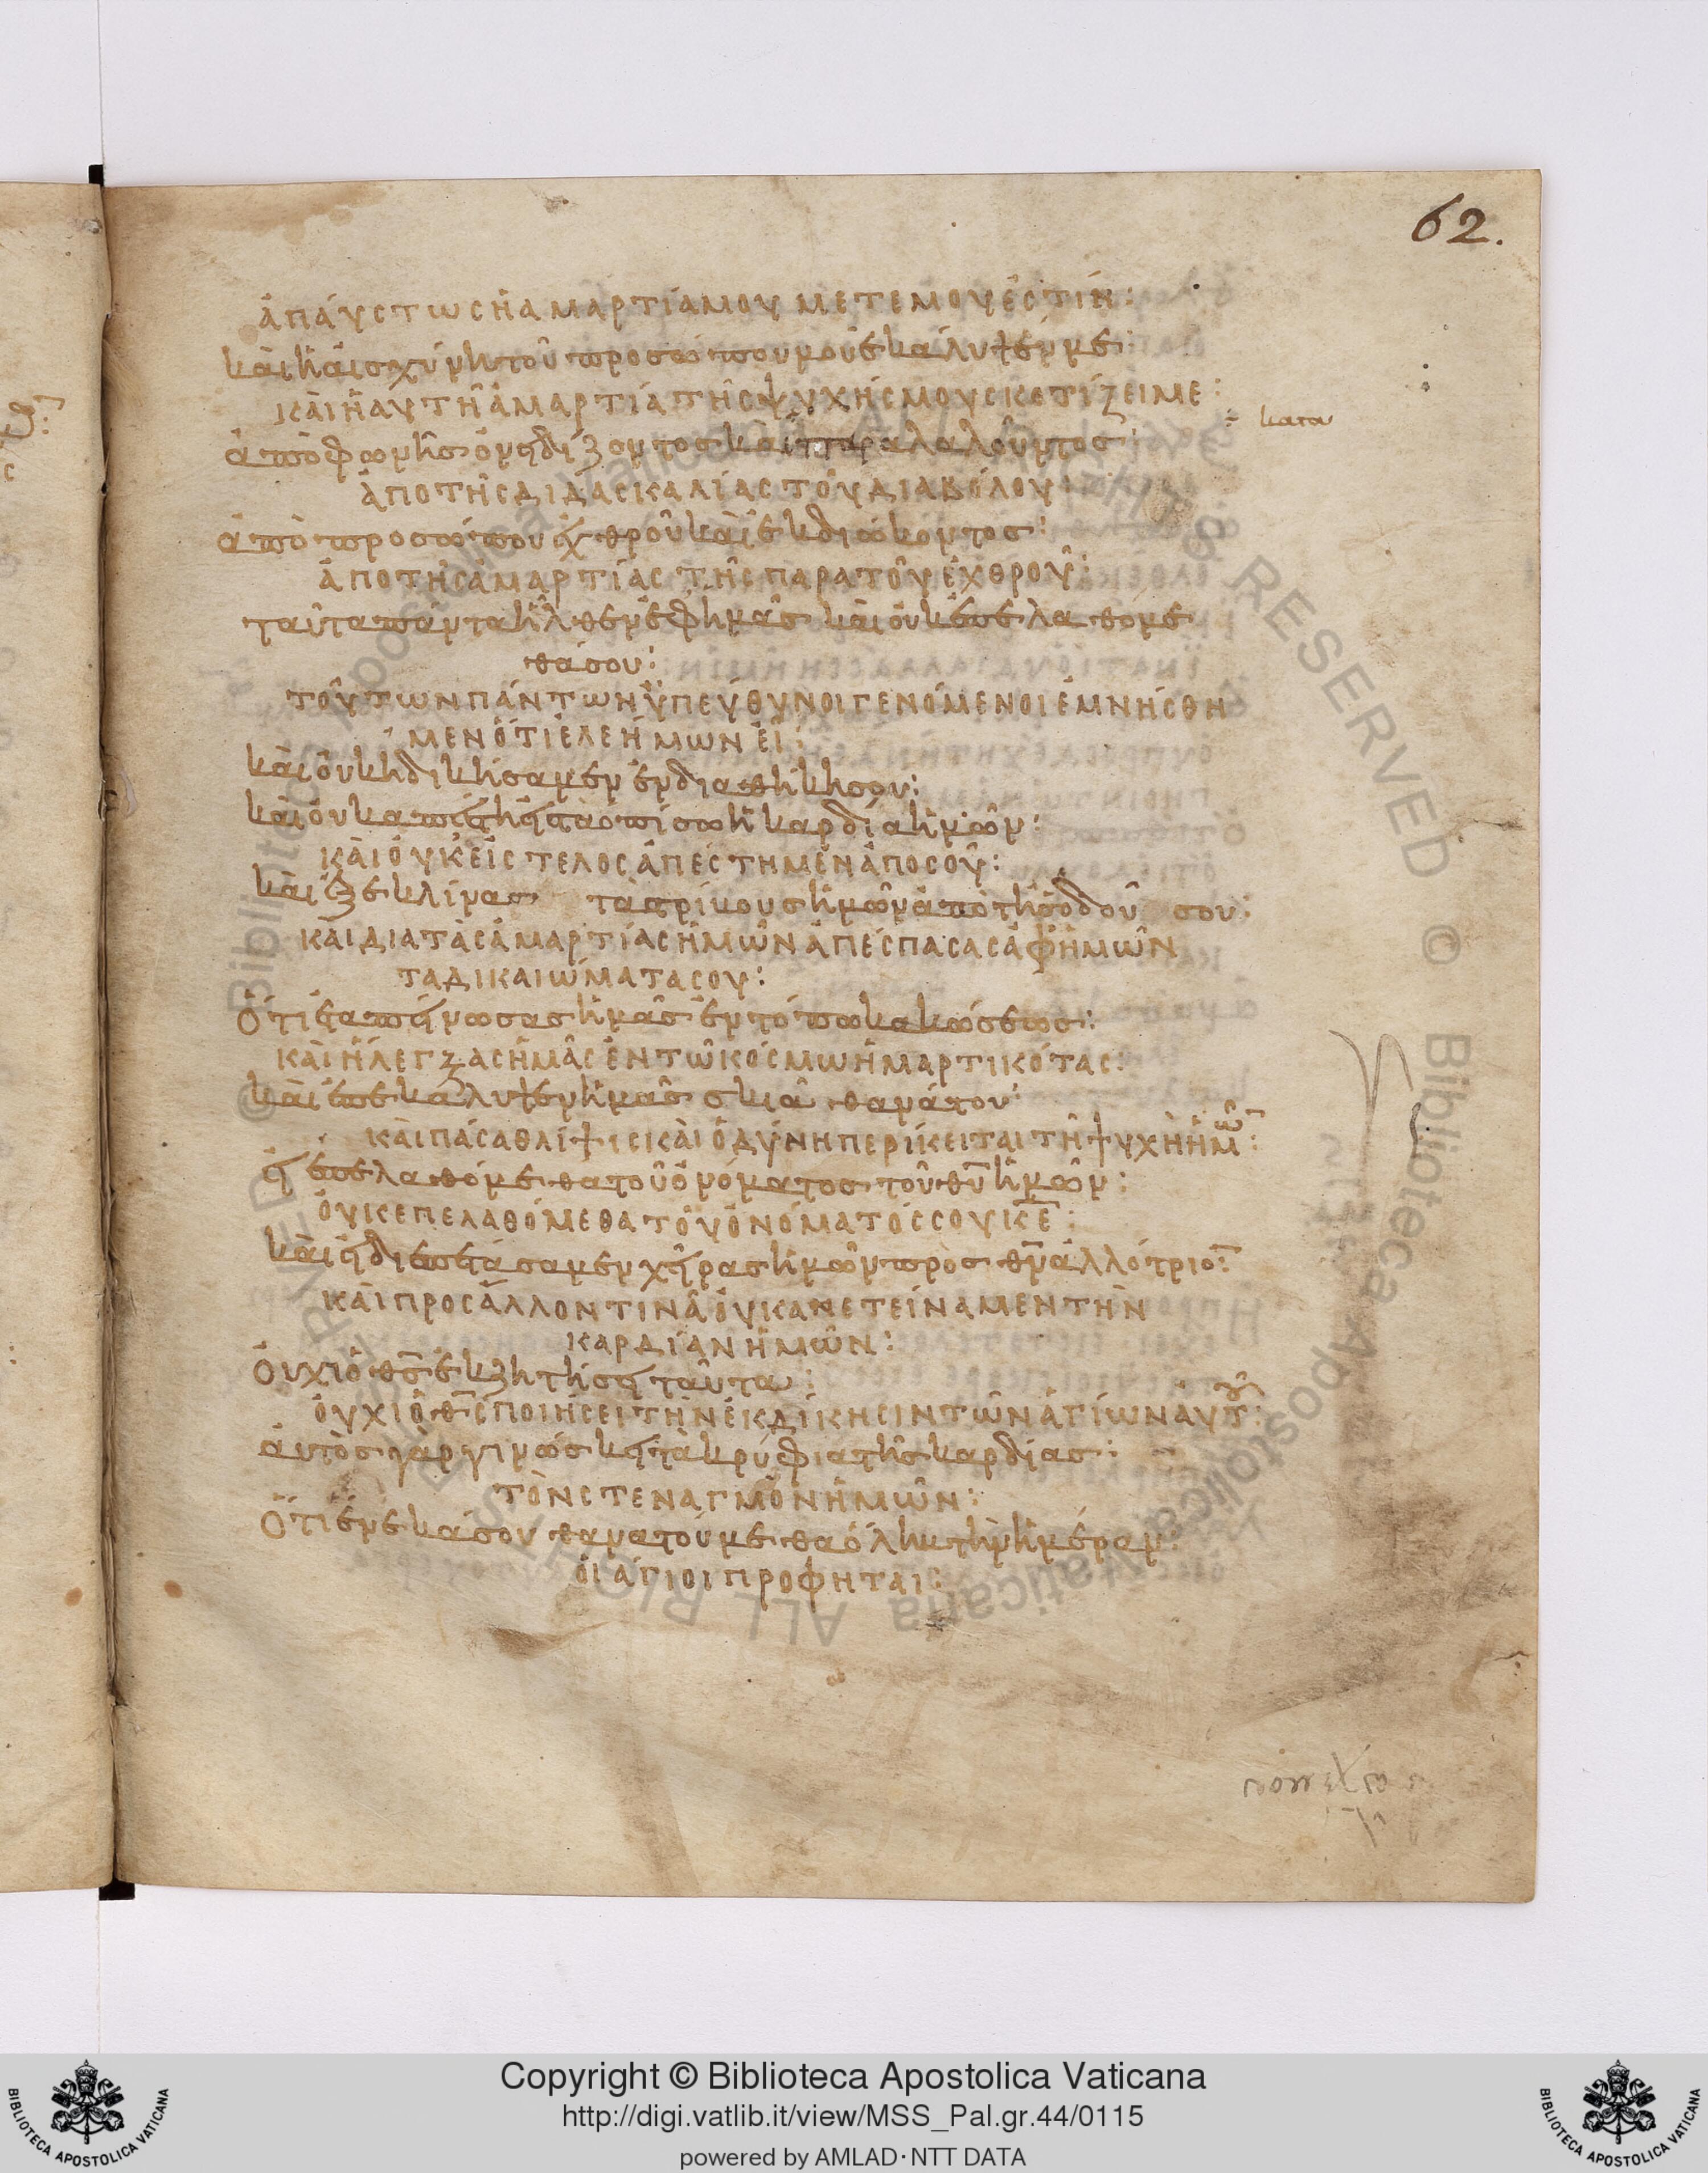 62.
ἀπάυστως ἡ ἁμαρτία μου μετ ἐμοῦ ἐστίν:
καὶ ἡ ἀισχύνη τοῦ προσώπου μου ἐκάλυψέν με:
καὶ ἡ αυτὴ ἁμαρτία τῆς ψυχῆς μου σκοτίζει με:
ἀπὸ φωνῆς ὀνειδίζοντος καὶ παραλαλοῦντος: ÷ κατα
ἀπο τῆς διδασκαλίας τοῦ διαβόλου
ἀπὸ προσώπου ἐχθροῦ καὶ ἐκδιώκοντος:
ἀπο τῆς ἁμαρτίας τῆς παρα τοῦ ἐχθροῦ:
ταῦτα πάντα ἦλθεν ἐφ ἡμᾶς καὶ ὀυκ ἐπελαθόμε
θά σου:
τοῦτων πάντων ὑπεύθυνοι γενόμενοι ἐμνήσθη
μεν ὅτι ἐλεήμων εἶ:
καὶ ὀυκ ηδικήσαμεν ἐν διαθήκη σου:
καὶ ὀυκ απέστη εἰς τὰ ὀπίσω ἡ καρδία ἡμῶν:
καὶ ὀυκ εἰς τελος ἀπέστημεν ἀπο σοῦ:
καὶ ἐξέκλινας τὰς τρίβους ἡμῶν ἀπὸ τῆς ὁδοῦ σου:
καὶ δια τὰς ἁμαρτίας ἡμῶν ἀπέσπασας ἀφ ἡμῶν
τα δικαιώματα σου:
Ὅτι ἐταπείνωσας ἡμᾶς ἐν τόπω κακώσεως:
καὶ ἤλεγξας ἡμᾶς ἐν τῶ κόσμω ἡμαρτικότας:
καὶ ἐπεκάλυψεν ἡμᾶς σκιὰ θανάτου:
καὶ πάσα θλίψις καὶ ὀδύνη περίκειται τῆ ψυχὴ ἡμῶ:
εἰ ἐπελαθόμεθα τοῦ ὀνόματος τοῦ θυ ἡμῶν:
ὀυκ επελαθόμεθα τοῦ ὀνόματός σου κε:
καὶ εἰ διεπετάσαμεν χεῖρας ἡμῶν πρὸς θν ἀλλότριο:
καὶ προς ἄλλον τινὰ ὀυκ ανετείναμεν τὴν
καρδίαν ἡμῶν:
Ὀυχὶ ὁ θς ἐκζητήσει ταῦτα:
ὀυχὶ ὁ θς ποιήσει τὴν ἐκδίκησιν τῶν ἁγίων ἀυτοῦ:
ἀυτὸς γὰρ γινώσκει τὰ κρύφια τῆς καρδίας:
τὸν στεναγμὸν ἡμῶν:
Ὅτι ἕνεκά σου θανατούμεθα ὅλην τὴν ἡμέραν:
ὁι ἁγιοι προφηται:
Copyright © Biblioteca Apostolica Vaticana
http://digi.vatlib.it/view/MSS_Pal.gr.44/0115
powered by AMLAD·NTT DATA
BIBLIOTECA APOSTOLICA VATICANA
BIBLIOTECA APOSTOLICA VATICANA